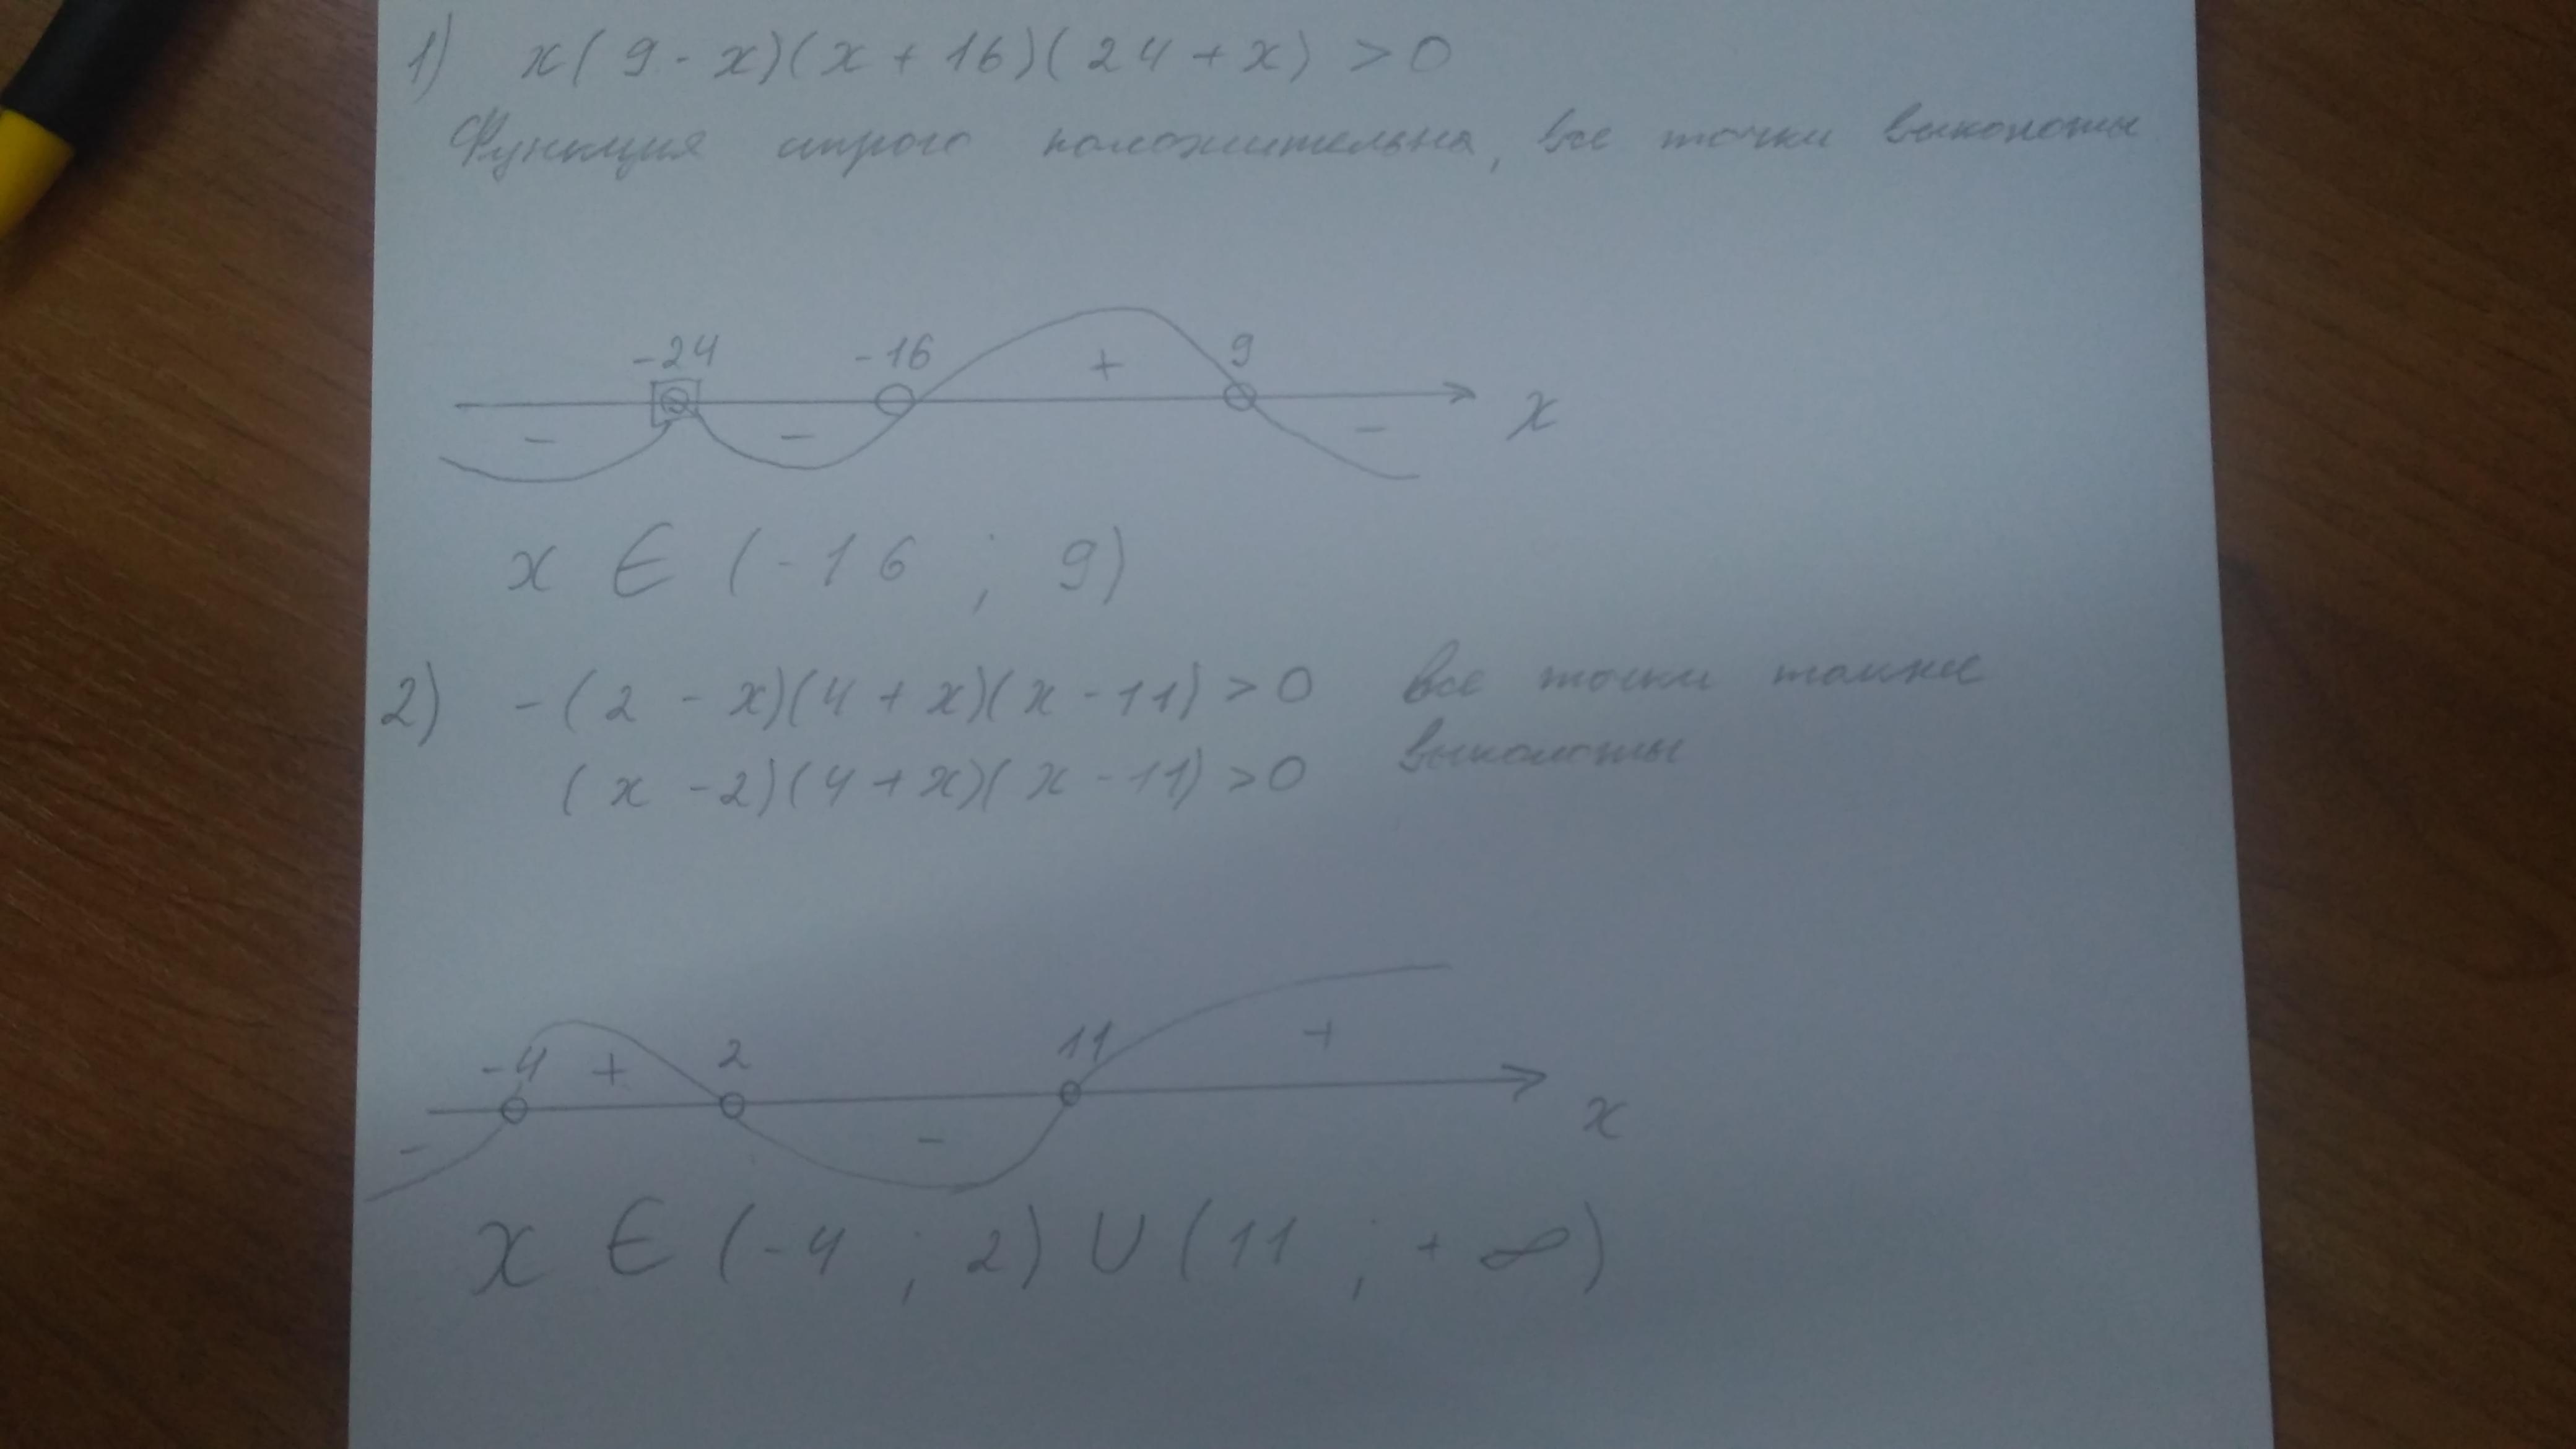 1) x(9-x)(x+16)(24+x) >0
Функция строго положительна, все точки выколоты
-24 -16 9
+
- - -
x
x ∈ (-16 ; 9)
2) -(2-x)(4+x)(x-11)>0 все точки также
(x-2)(4+x)(x-11)>0 выколоты
+
-4 + 2 11
x
- -
x ∈ (-4 ; 2) ∪ (11 ; +∞)